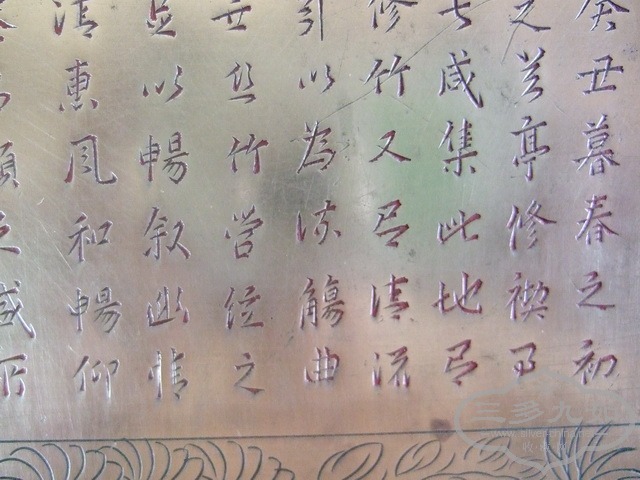 癸丑暮春之初
之蘭亭修禊事
長咸集此地有
修竹又有清流
引以為流觴曲
無丝竹管弦之
足以暢叙幽情
清惠風和暢仰
類之盛所
三多九如